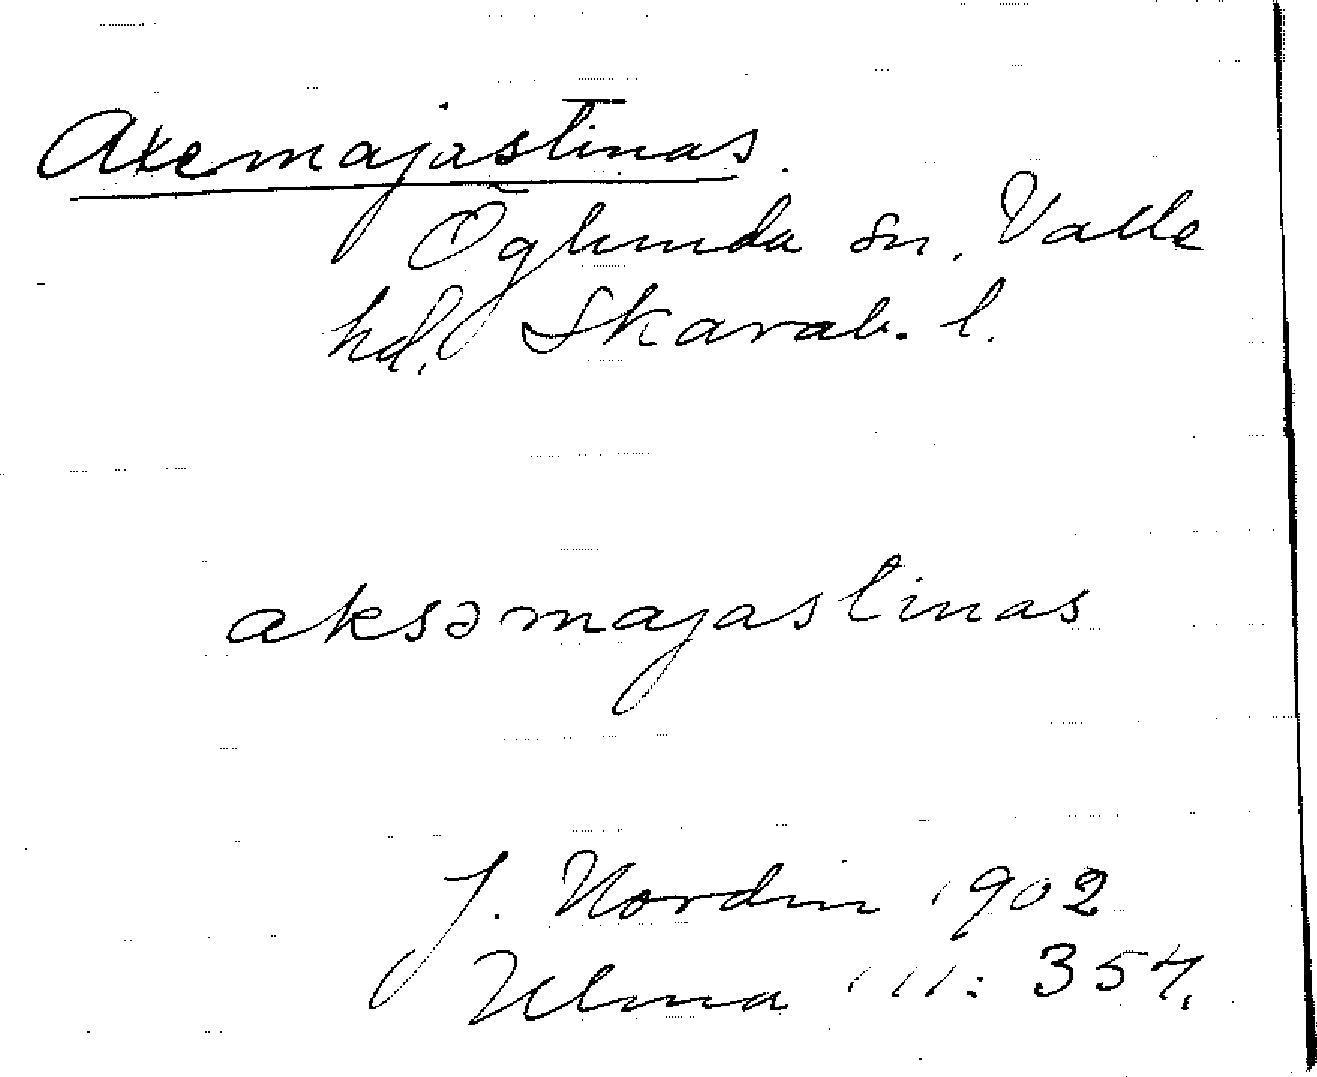 Axemajastinas.
Öglunda sn, Valle
hd, Skarab. l.
aksəmajastinas
J. Nordin 1902
Ulma 111: 354,